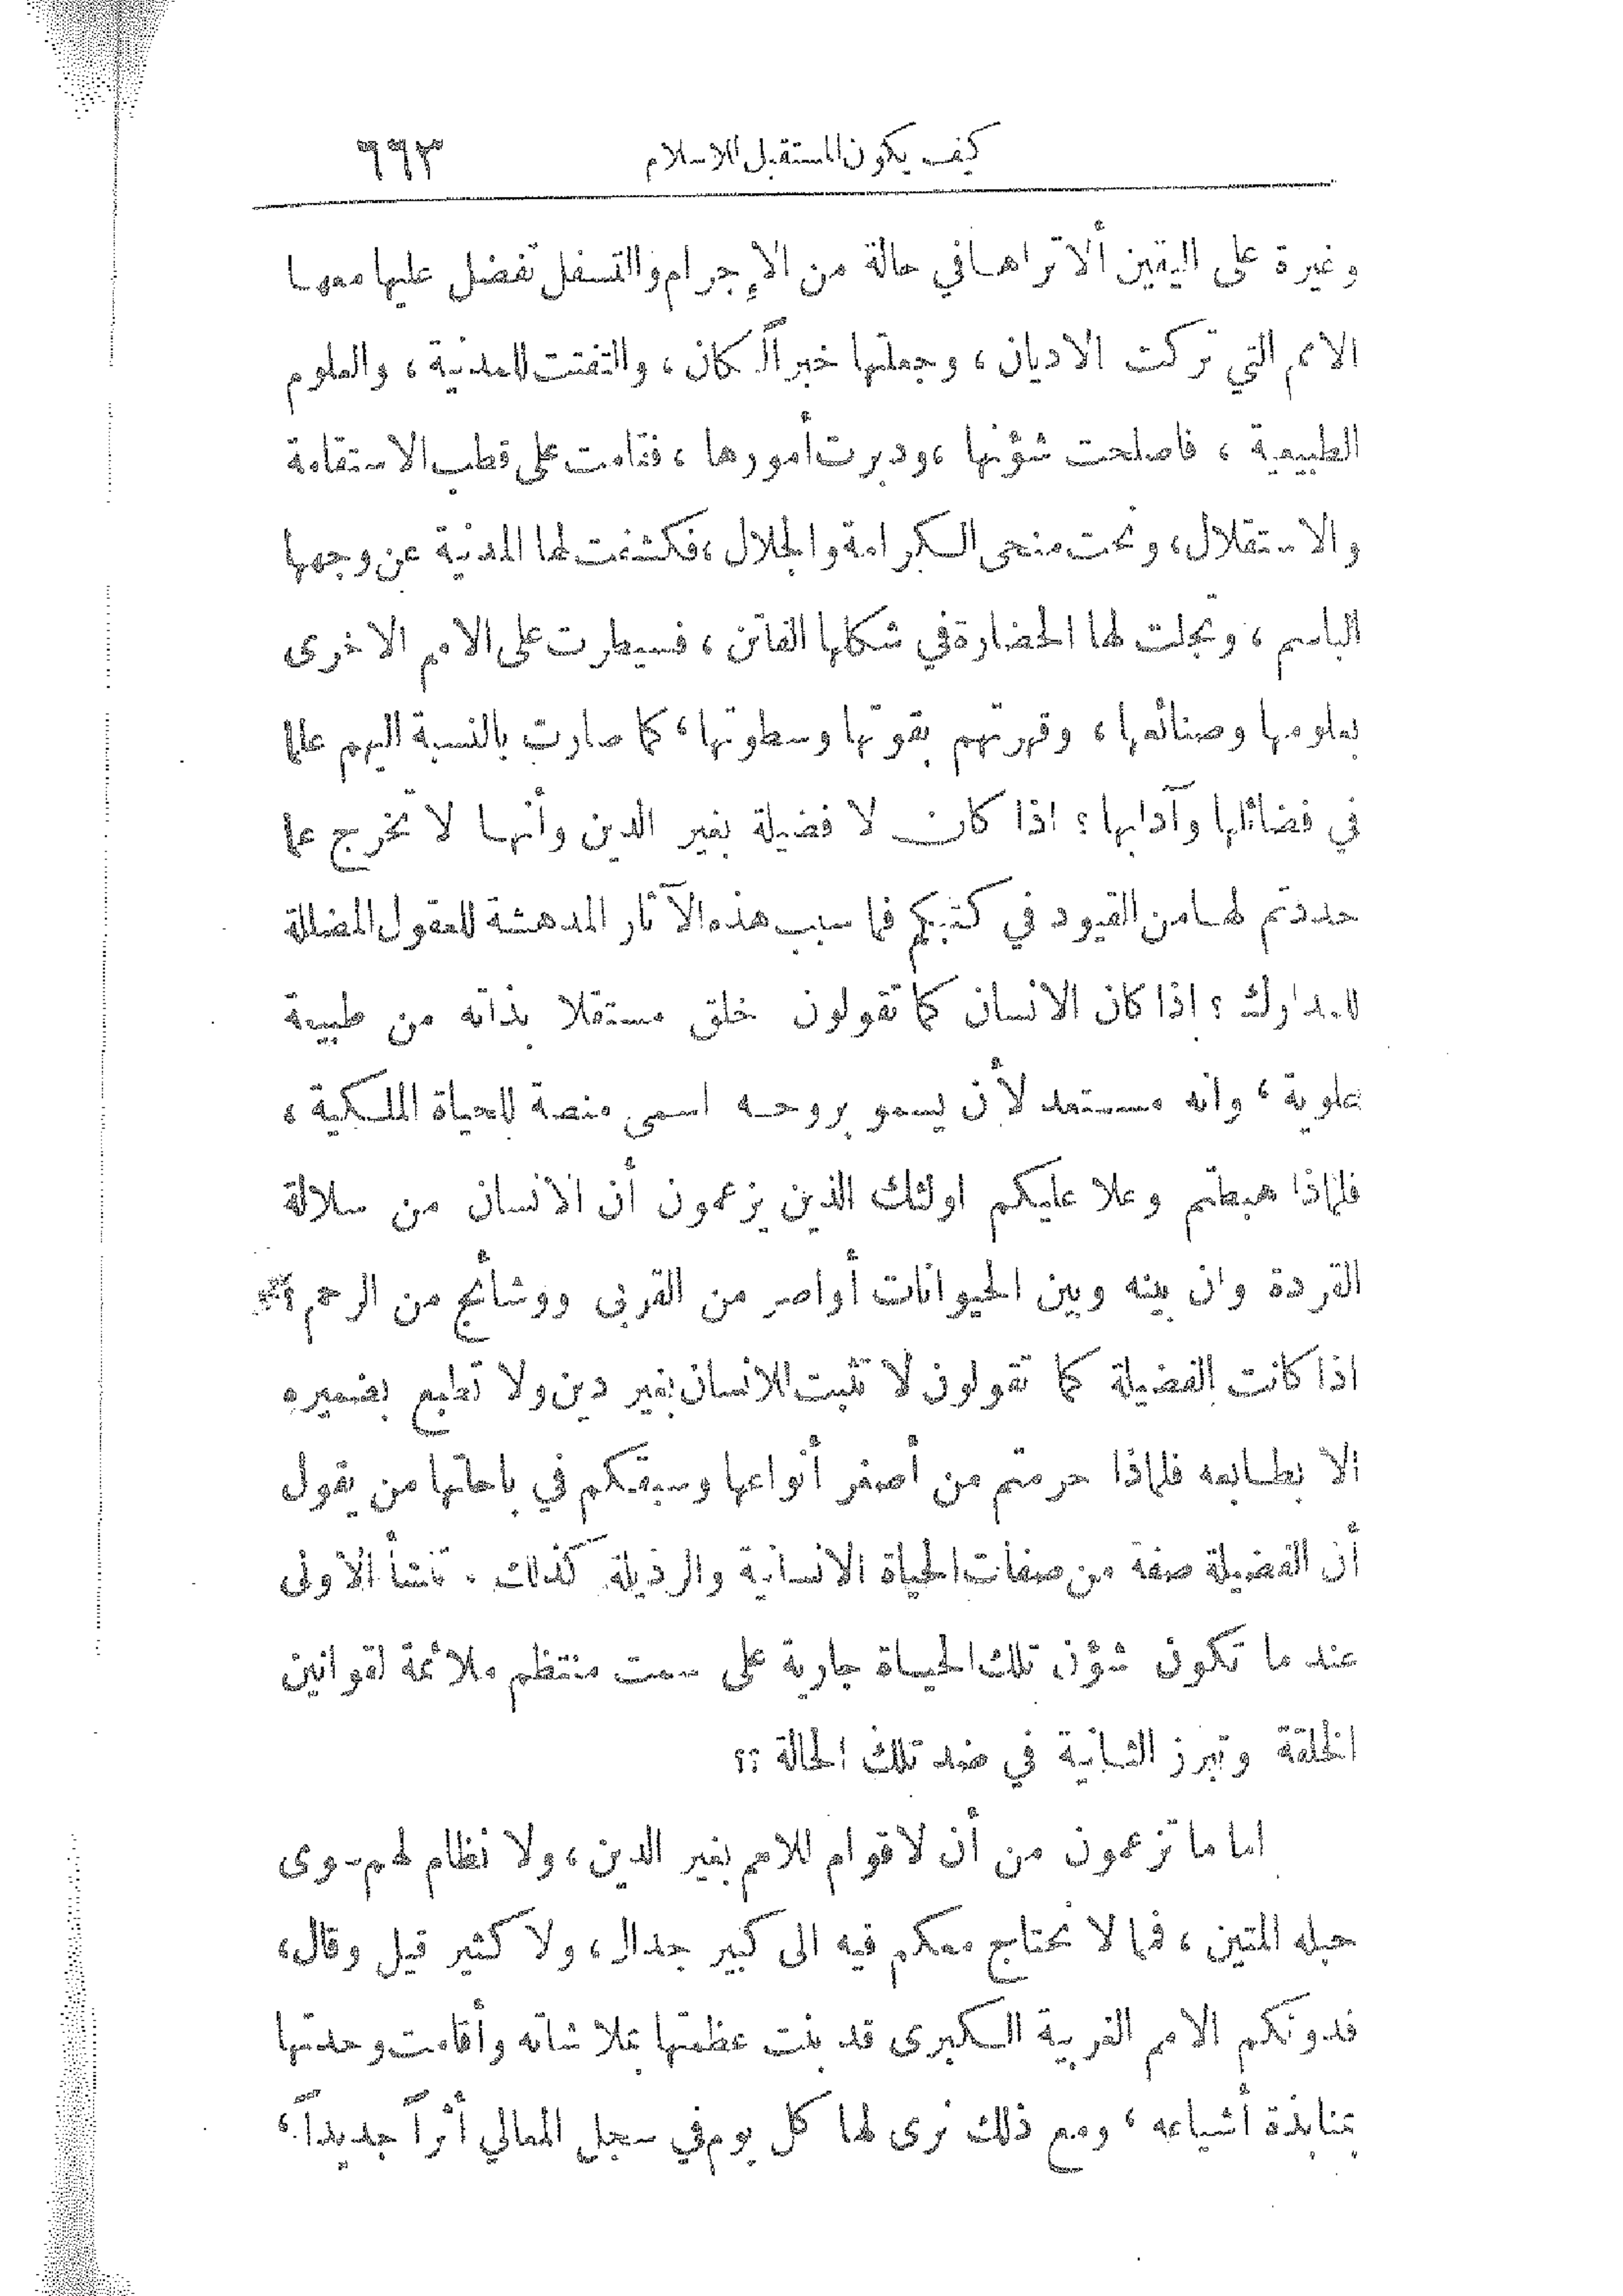 كيف يكون المستقبل للاسلام
٦٦٣
وغيرة على اليقين ألا تراها في حالة من الإجرام والتسفل تفضل عليها معها
الامم التي تركت الاديان ، وجعلتها خبراً لكان ، والتفتت للمدنية ، والعلوم
الطبيعية ، فاصلحت شؤنها ، ودبرت أمورها ، فقامت على قطب الاستقامة
والاستقلال ، ونحت منحى الكرامة والجلال ، فكشفت لها المدنية عن وجهها
الباسم ، وتجلت لها الحضارة في شكلها الفاتن ، فسيطرت على الامم الاخرى
بعلومها وصنائعها ، وقهرتهم بقوتها وسطوتها ، كما صارت بالنسبة اليهم علما
في فضائلها وآدابها ؛ اذا كان لا فضيلة بغير الدين وأنها لا تخرج عما
حددتم لها من القيود في كتبكم فما سبب هذه الآثار المدهشة للعقول المضللة
للمدارك ؟ اذا كان الانسان كما تقولون خلق مستقلا بذاته من طبيعة
علوية ، وانه مستعد لأن يسمو بروحه اسمى منصة للحياة الملكية ،
فلماذا هبطتم وعلا عليكم اولئك الذين يزعمون أن الانسان من سلالة
القردة وان بينه وبين الحيوانات أواصر من القربى ووشائج من الرحم ؟
اذا كانت الفضيلة كما تقولون لا تثبت للانسان بغير دين ولا تطبع بضميره
الا بطابعه فلماذا حرمتم من أصغر أنواعها وسبقكم في باحاتها من يقول
أن الفضيلة صفة من صفات الحياة الانسانية والرذيلة كذلك . تنشأ الاولى
عند ما تكون شؤن تلك الحياة جارية على سمت منتظم ملائمة لقوانين
الخلقة وتبرز الثانية في ضد تلك الحالة ؟؟
اما ما تزعمون من أن لا قوام للامم بغير الدين ، ولا نظام لهم سوى
حبله المتين ، فما لا نحتاج معكم فيه الى كبير جدال ، ولا كثير قيل وقال ،
فدونكم الامم الغربية الكبرى قد بنت عظمتها بملاشاته وأقامت وحدتها
بمنابذة أشياعه ، ومع ذلك نرى لها كل يوم في سجل المعالي أثراً جديداً ،